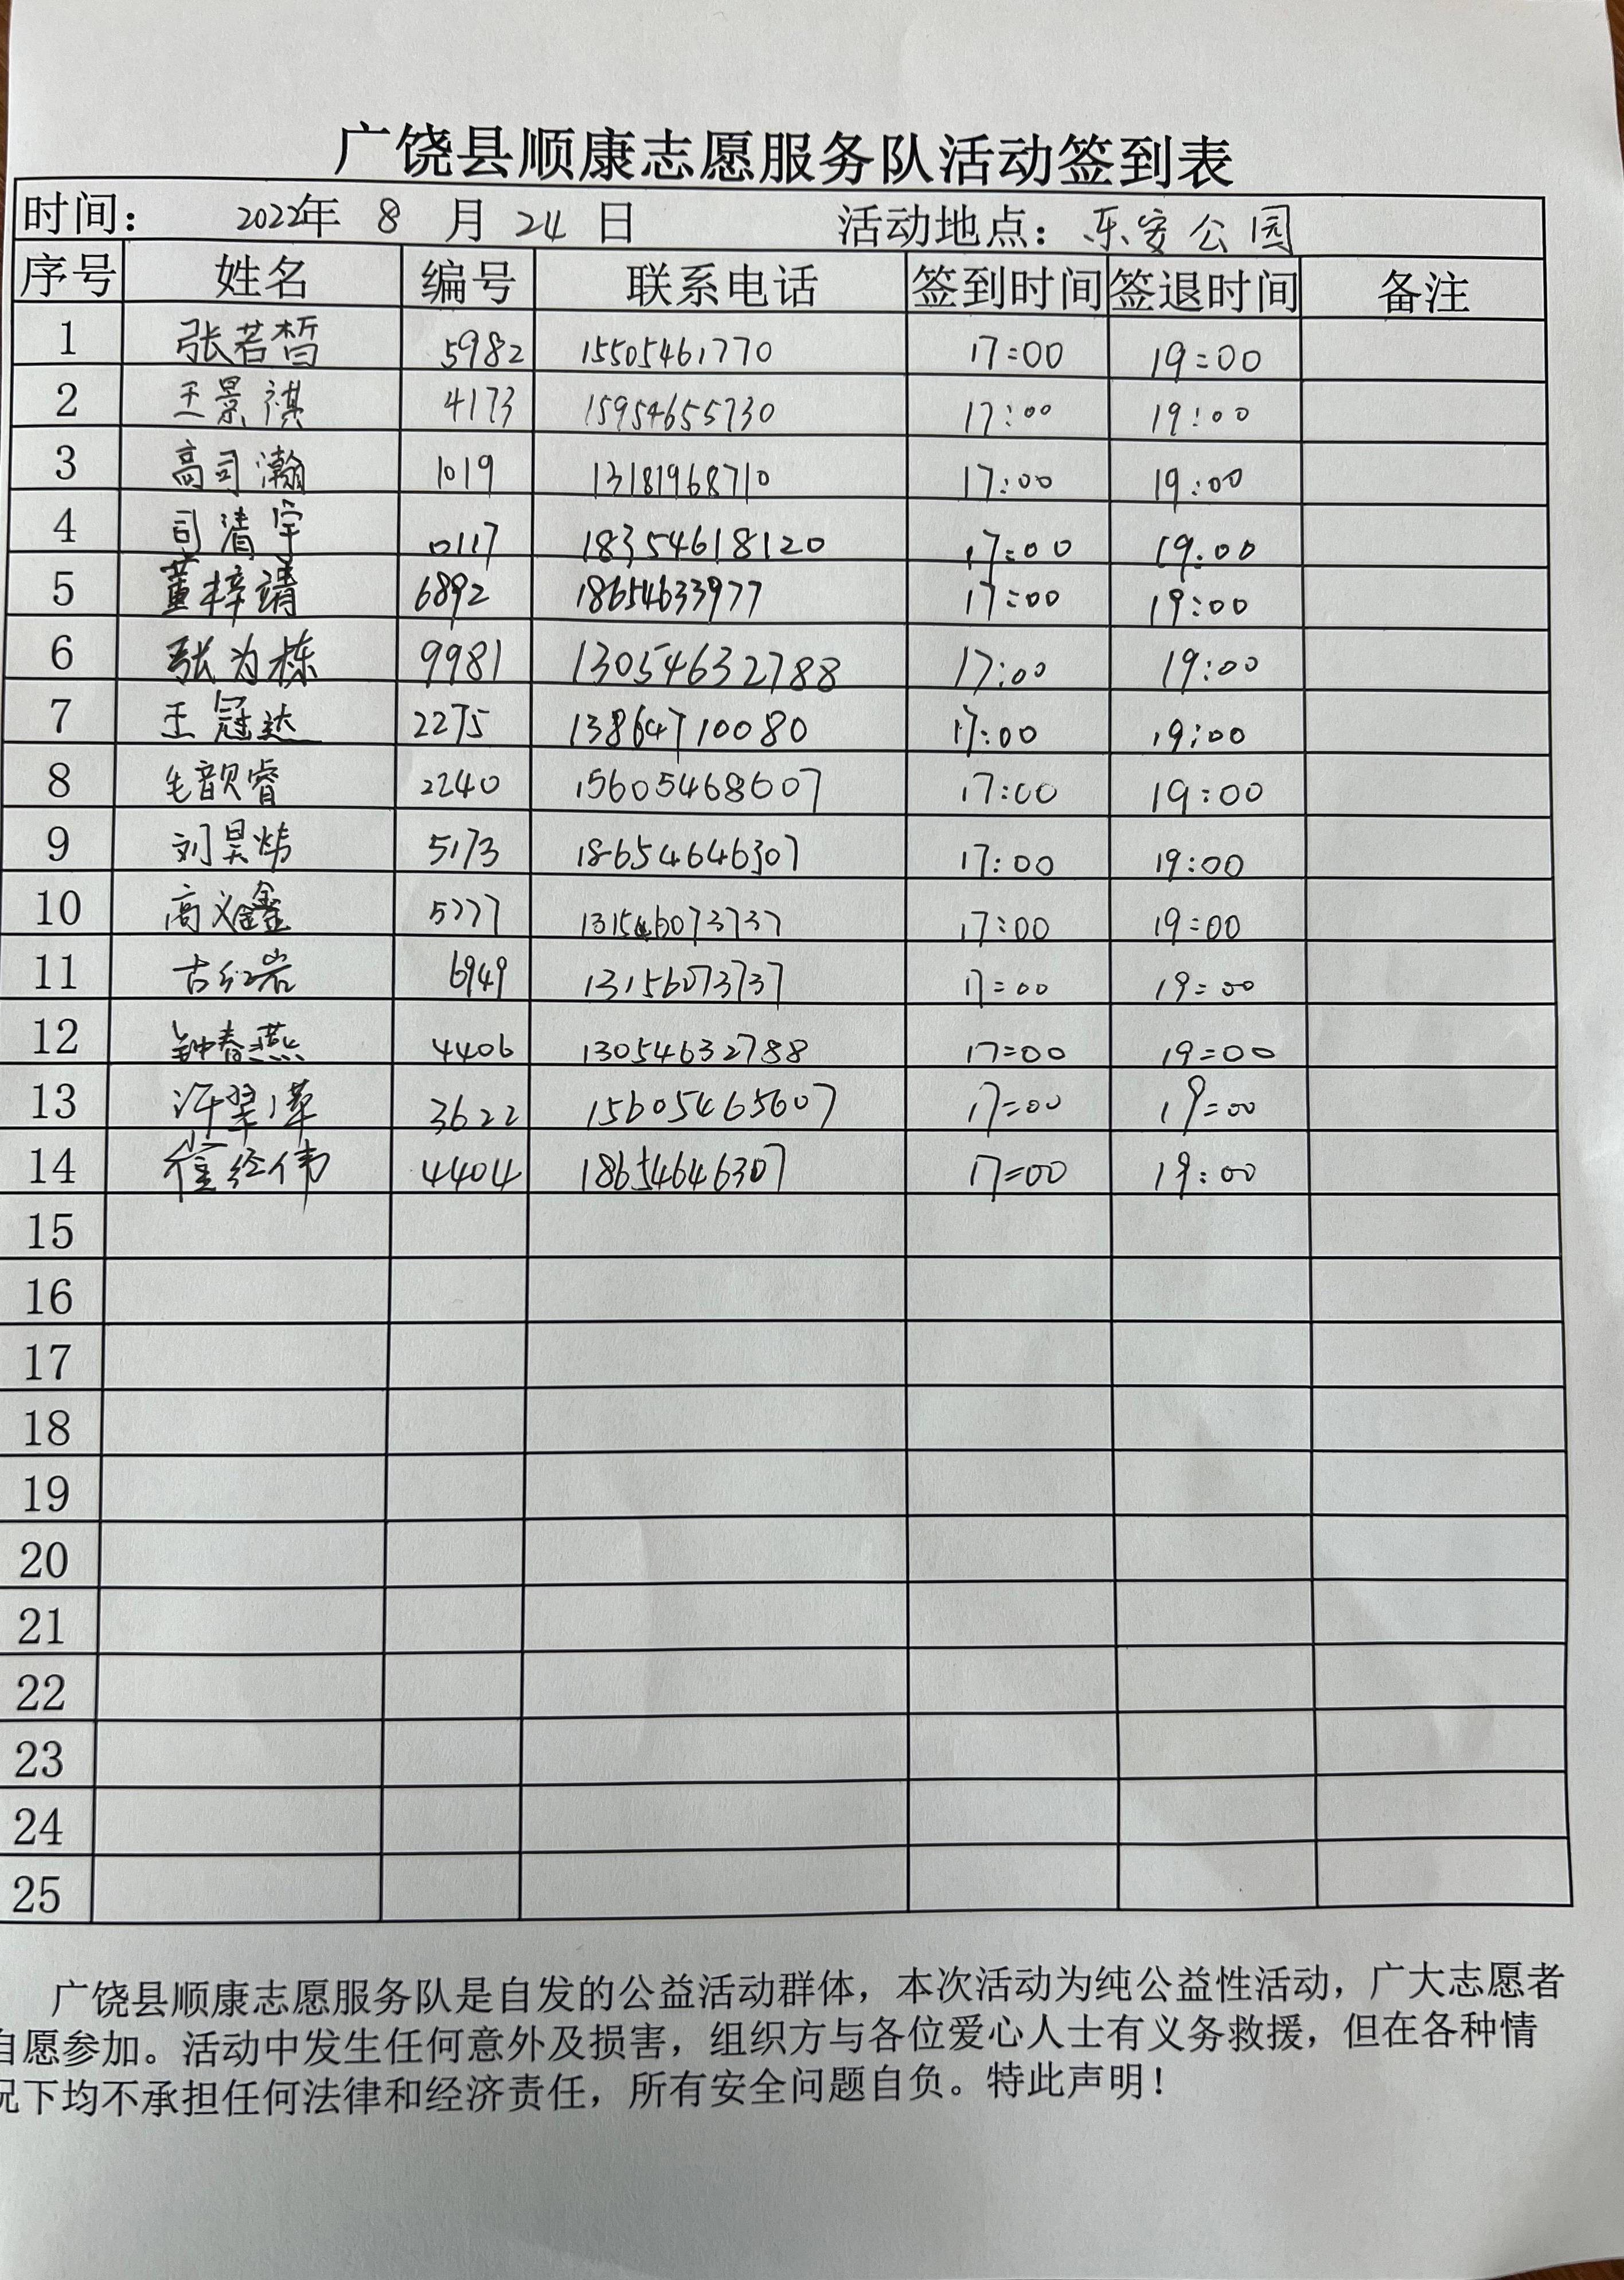 广饶县顺康志愿服务队活动签到表
时间： 2022年 8 月 24 日 活动地点：乐安公园
序号 姓名 编号 联系电话 签到时间 签退时间 备注
1 张若皙 5982 15505461770 17:00 19:00
2 王景祺 4173 15954655730 17:00 19:00
3 高司瀚 1019 13181968710 17:00 19:00
4 司清宇 0117 18354618120 17:00 19:00
5 董梓靖 6892 18654633977 17:00 19:00
6 张为栋 9981 13054632788 17:00 19:00
7 王冠达 2275 13864710080 17:00 19:00
8 毛韵睿 2240 15605468607 17:00 19:00
9 刘昊炜 5173 18654646307 17:00 19:00
10 高义鑫 5777 17:00 19:00
11 古红岩 6949 13156073737 17:00 19:00
12 钟春燕 4406 13054632788 17:00 19:00
13 3622 15605465607 17:00 19:00
14 崔经伟 4404 18654646307 17:00 19:00
15
16
17
18
19
20
21
22
23
24
25
广饶县顺康志愿服务队是自发的公益活动群体，本次活动为纯公益性活动，广大志愿者
自愿参加。活动中发生任何意外及损害，组织方与各位爱心人士有义务救援，但在各种情
况下均不承担任何法律和经济责任，所有安全问题自负。特此声明！